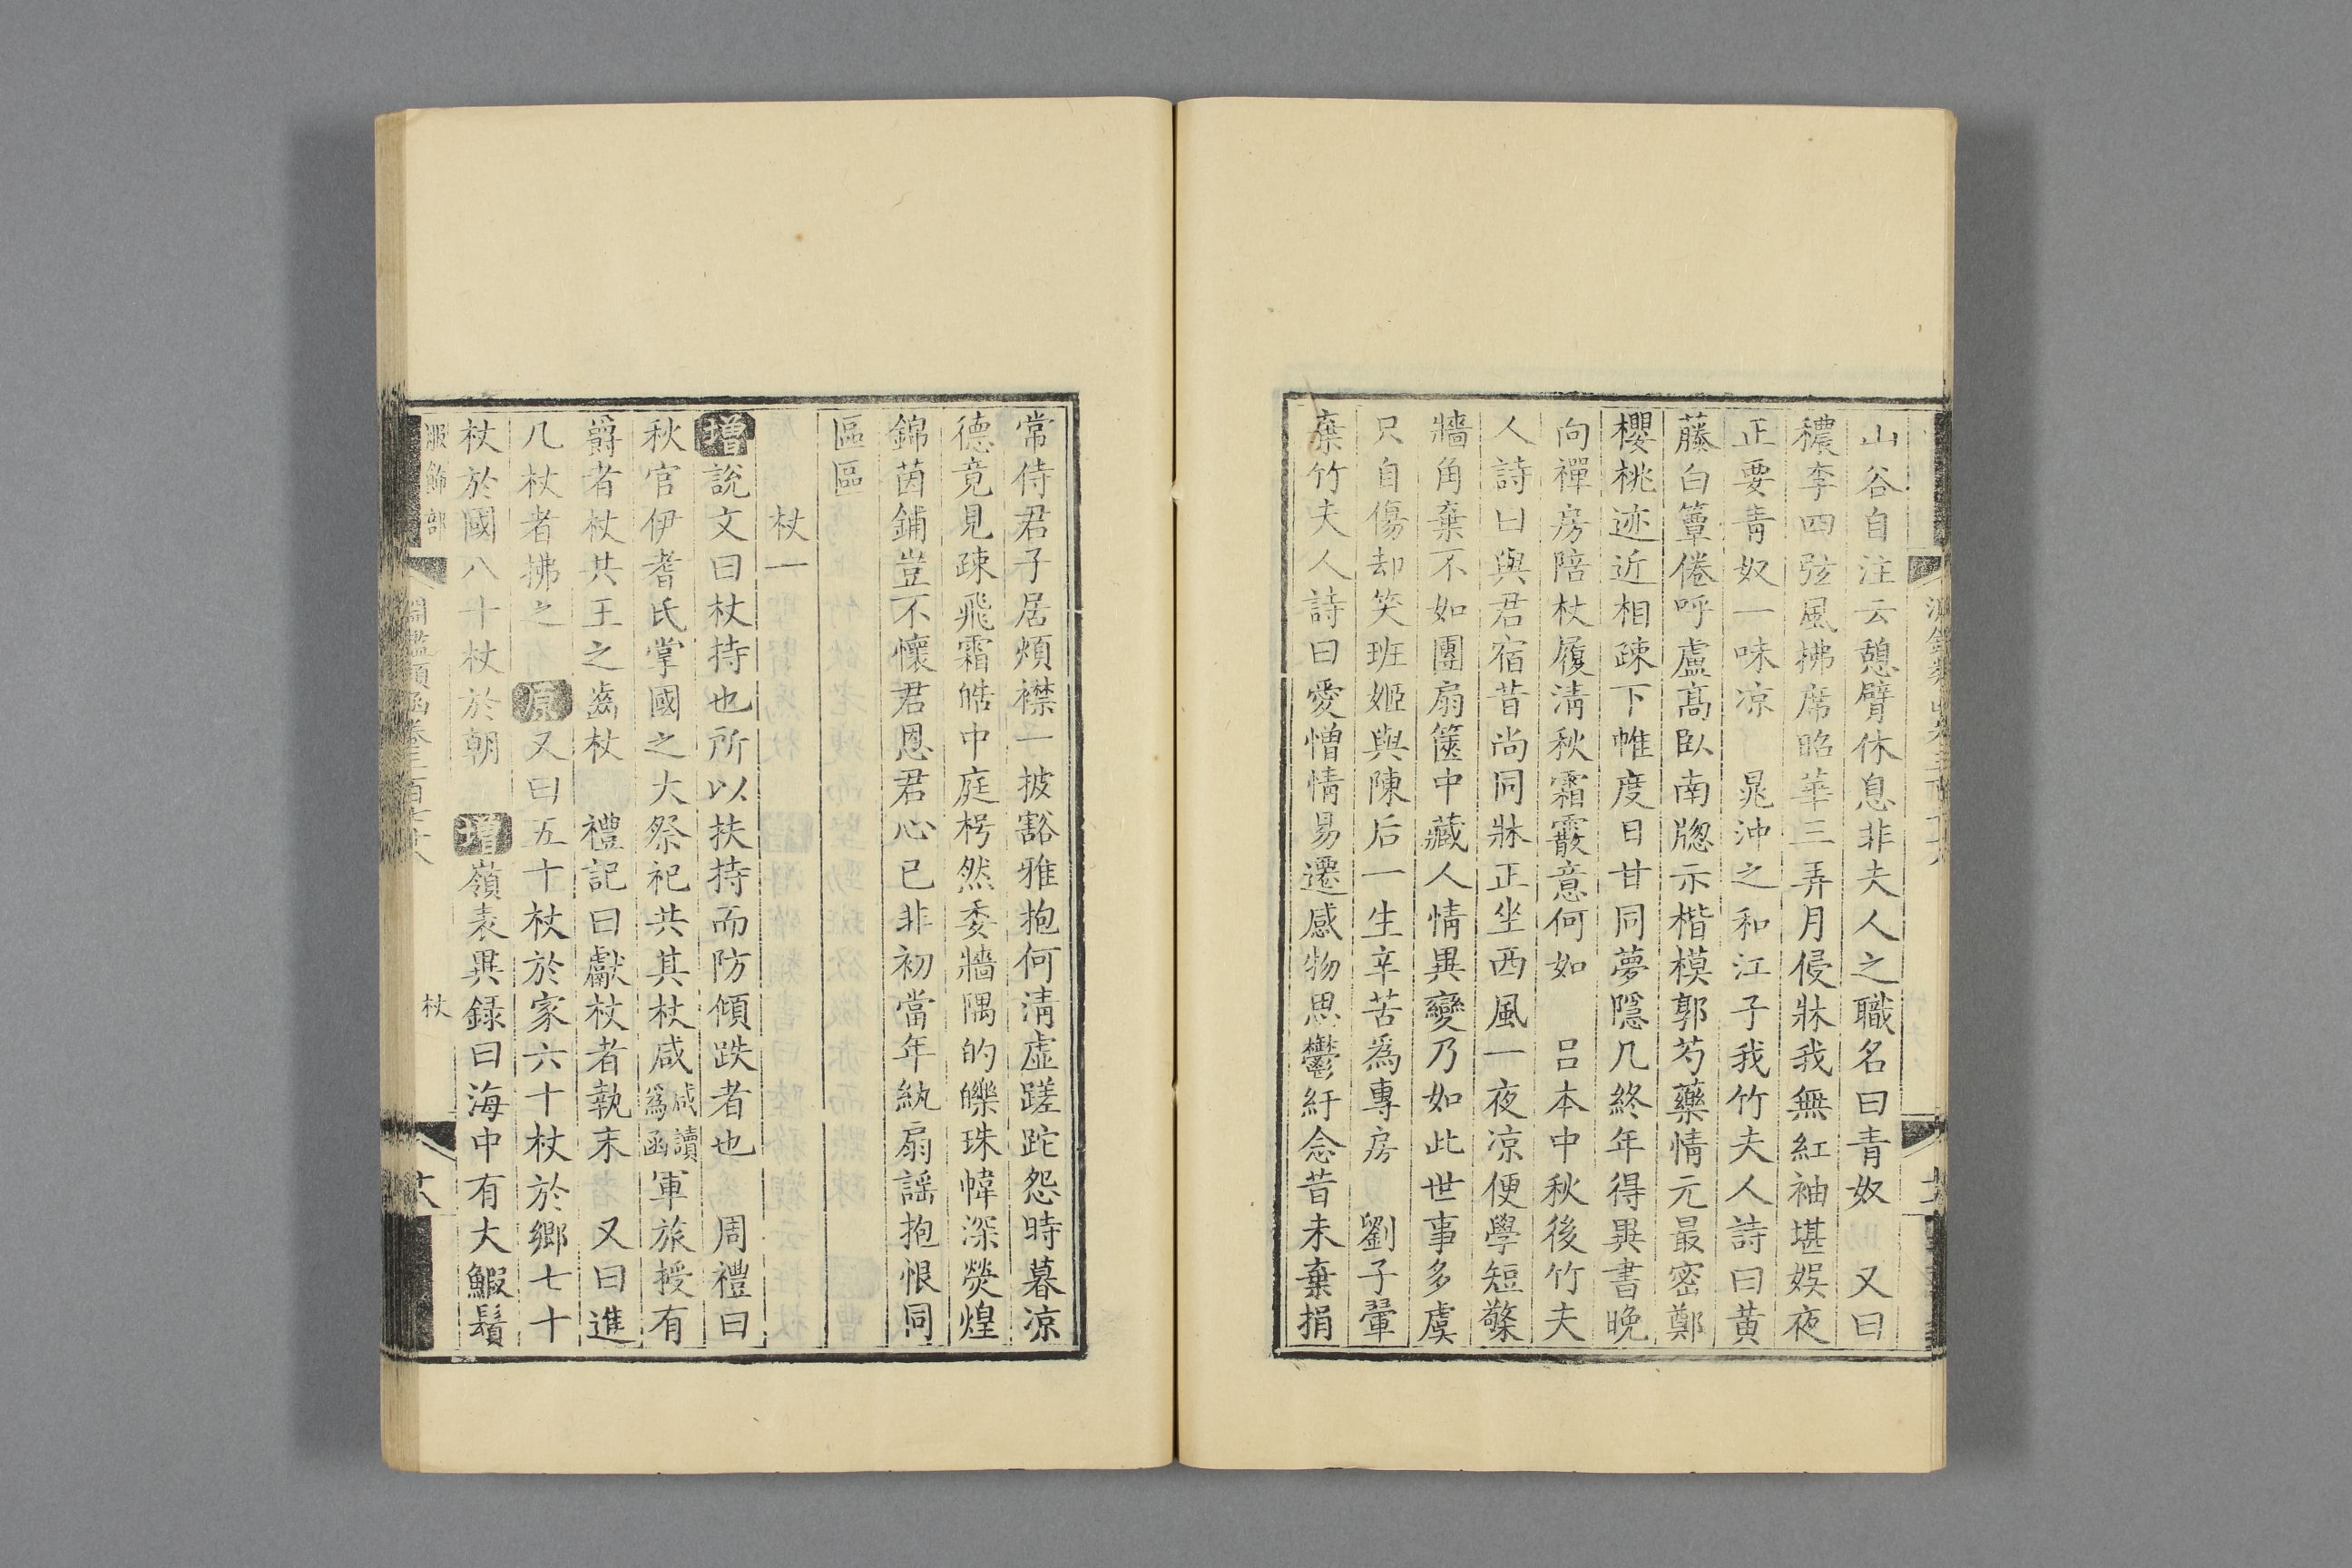 山谷自注云憩臂休息非夫人之職名曰青奴　又曰
穠李四弦風拂席昭華三弄月侵牀我無紅袖堪娛夜
正要青奴一味凉　晁沖之和江子我竹夫人詩曰黄
藤白簟倦呼盧髙臥南牎示楷模郭芍藥情元最密鄭
櫻桃迹近相疎下帷度日甘同夢隱几終年得異書晚
向禪房陪杖履清秋霜霰意何如　呂本中秋後竹夫
人詩曰與君宿昔尚同牀正坐西風一夜凉便學短檠
牆角棄不如團扇篋中藏人情異變乃如此世事多虞
只自傷却笑班姬與陳后一生辛苦為專房　劉子翬
棄竹夫人詩曰愛憎情易遷感物思鬱紆念昔未棄捐
常侍君子居煩襟一披豁雅抱何清虛蹉跎怨時暮凉
德竟見疎飛霜皓中庭枵然委牆隅的皪珠幃深熒煌
錦茵鋪豈不懷君恩君心已非初當年紈扇謡抱恨同
區區
杖一
增說文曰杖持也所以扶持而防傾跌者也　周禮曰
秋官伊耆氏掌國之大祭祀共其杖咸咸讀為函軍旅授有
爵者杖共王之齒杖　禮記曰獻杖者執末　又曰進
几杖者拂之　原又曰五十杖於家六十杖於鄉七十
杖於國八十杖於朝　增嶺表異録曰海中有大鰕鬚
服飾部　淵鑑類函卷三百七十八　杖